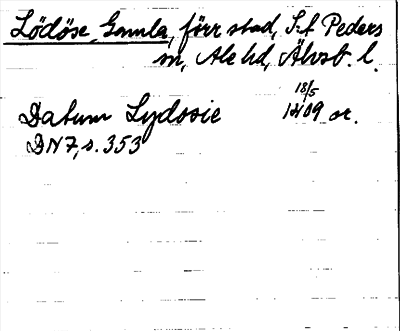 Lödöse, Gamla, förr stad, S:t Peders
sn, Ale hd, Älvsb. l.
18/5
Datum Lydosie 1409 or.
DN 7, s. 353